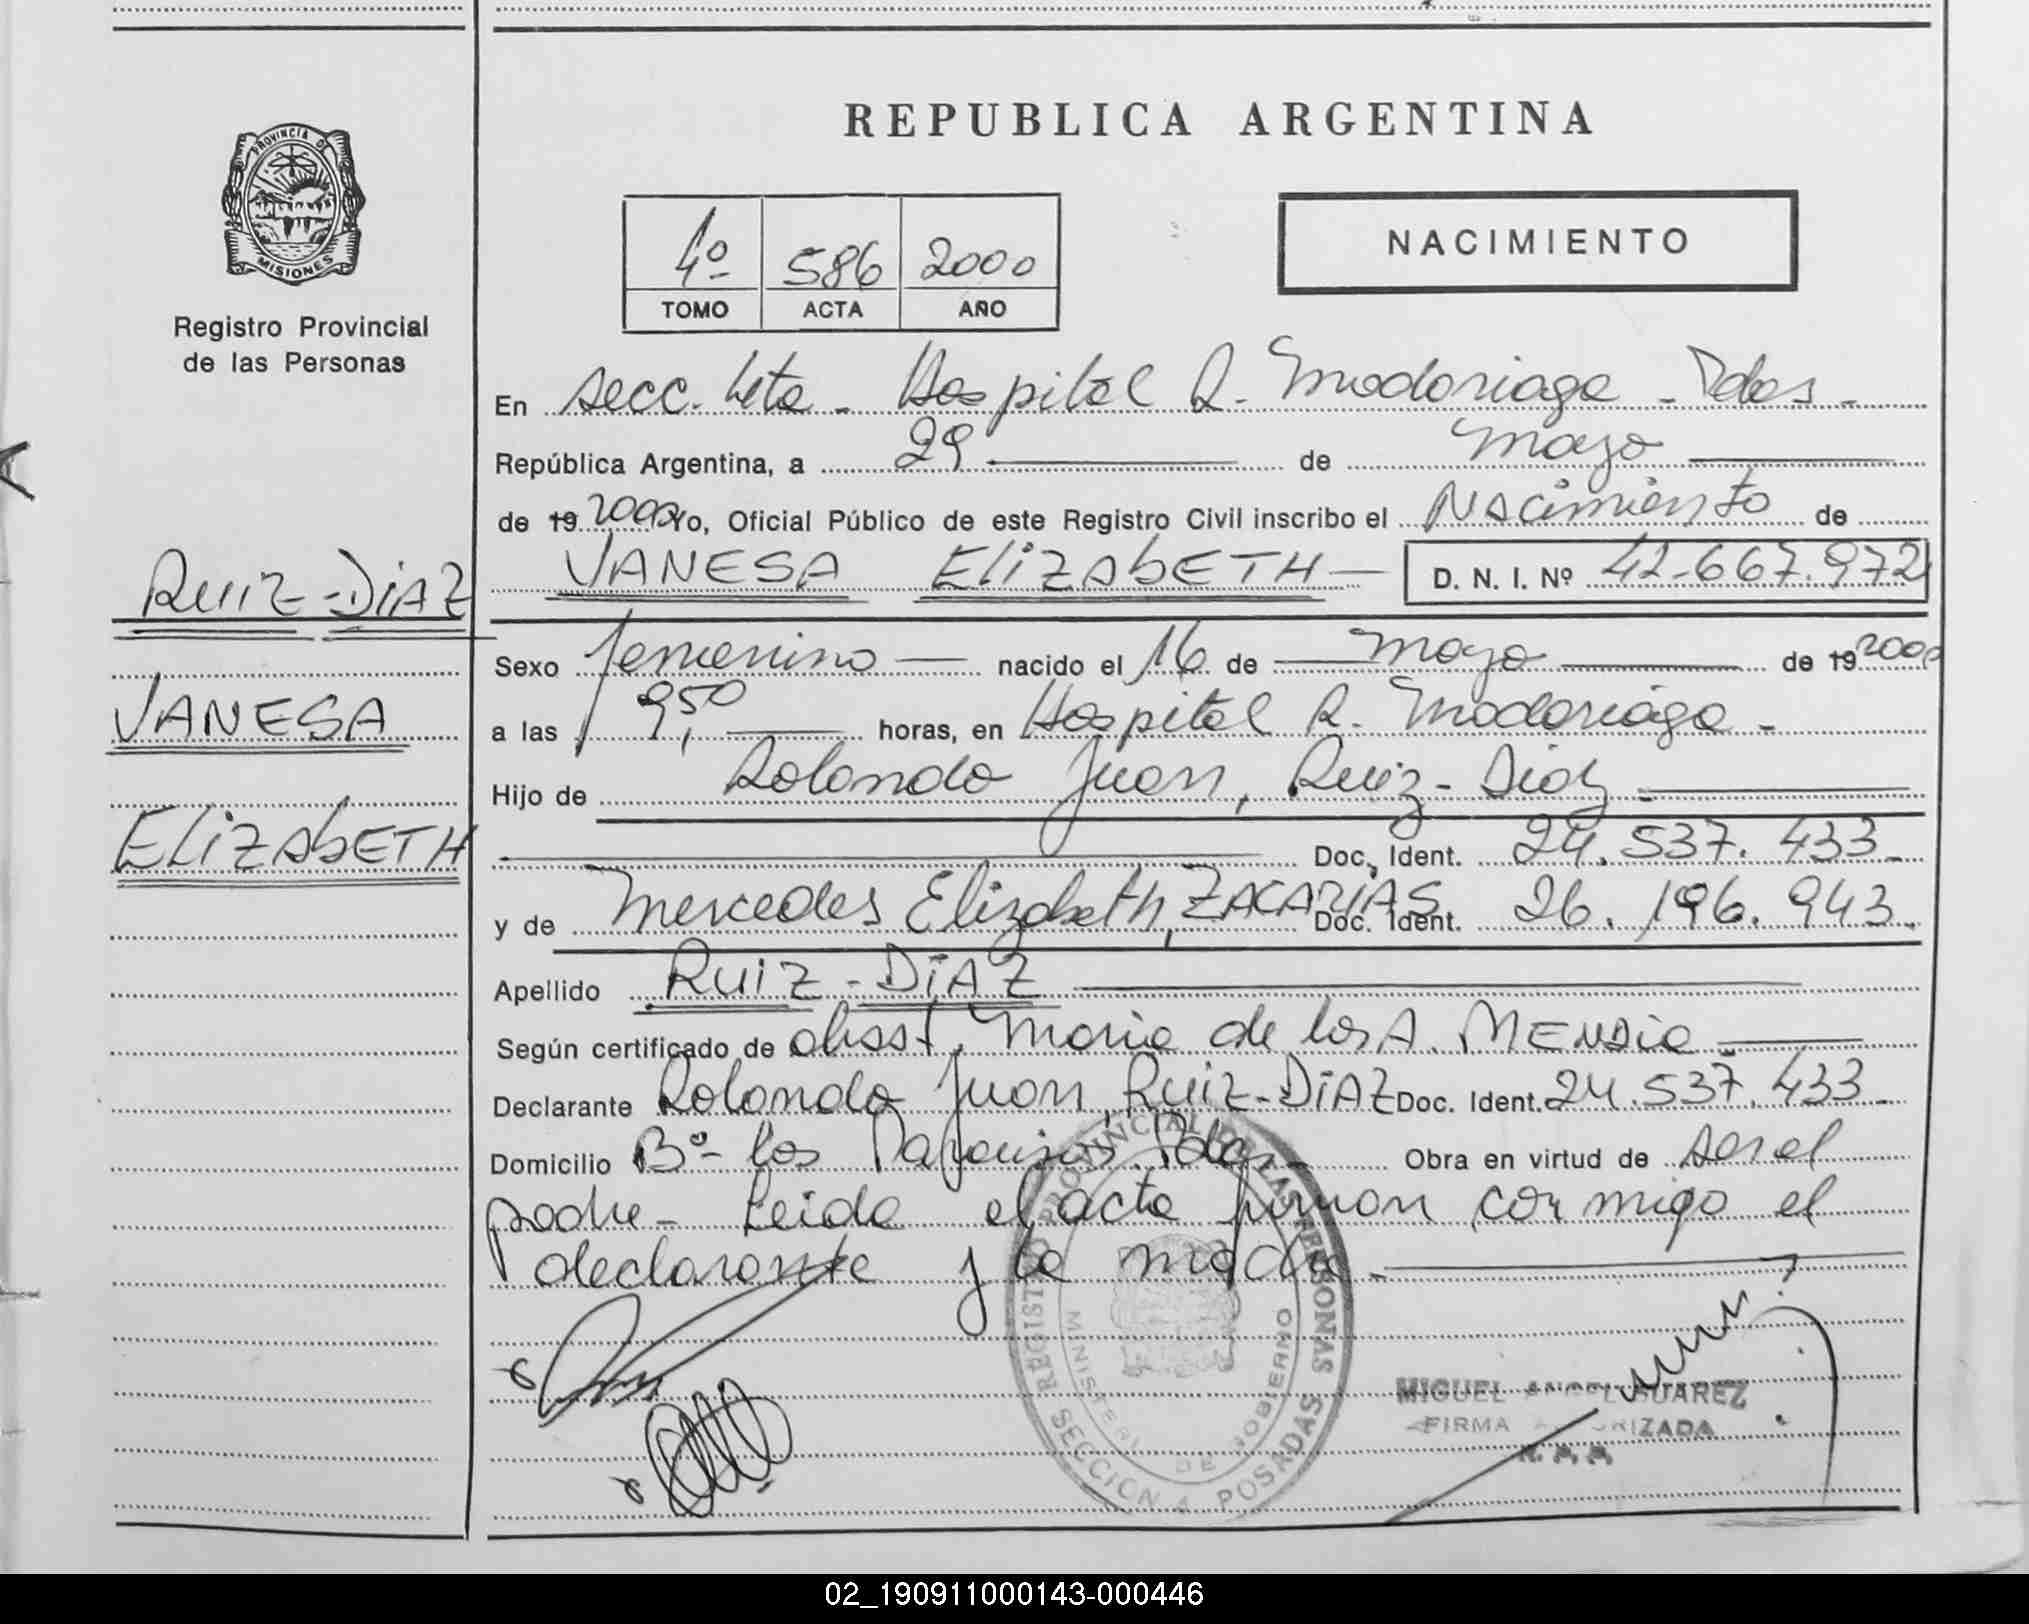 PROVINCIA DE
MISIONES
Registro Provincial
de las Personas
RUIZ-DiAZ
VANESA
ELiZAbETH
REPUBLICA ARGENTINA
4º 586 2000
TOMO ACTA AÑO
NACIMIENTO
En secc. 4ta - Hospital R. Madariaga - Pdas -
República Argentina, a 29 de mayo
de 19 2000 Yo, Oficial Público de este Registro Civil inscribo el Nacimiento de
VANESA ELiZAbETH D. N. I. Nº 42.667.972
Sexo femenino nacido el 16 de mayo de 19 2000
a las 9,50 horas, en Hospital R. Madariaga -
Hijo de Rolando Juan, Ruiz-Diaz
Doc. Ident. 24.537.433-
y de Mercedes Elizabeth, ZACARIAS Doc. Ident. 26.196.943-
Apellido RUIZ-DiAZ
Según certificado de obsst. Maria de los A. MENDiA
Declarante Rolando Juan, Ruiz-DiAZ Doc. Ident. 24.537.433-
Domicilio Bº- los Pdas- Obra en virtud de ser el
padre- Leida el acta firman conmigo el
declarante y la madre-
REGISTRO PROVINCIAL DE LAS PERSONAS
MINISTERIO DE GOBIERNO
SECCION 4 POSADAS
MIGUEL ANGEL SUAREZ
FIRMA AUTORIZADA
02_190911000143-000446